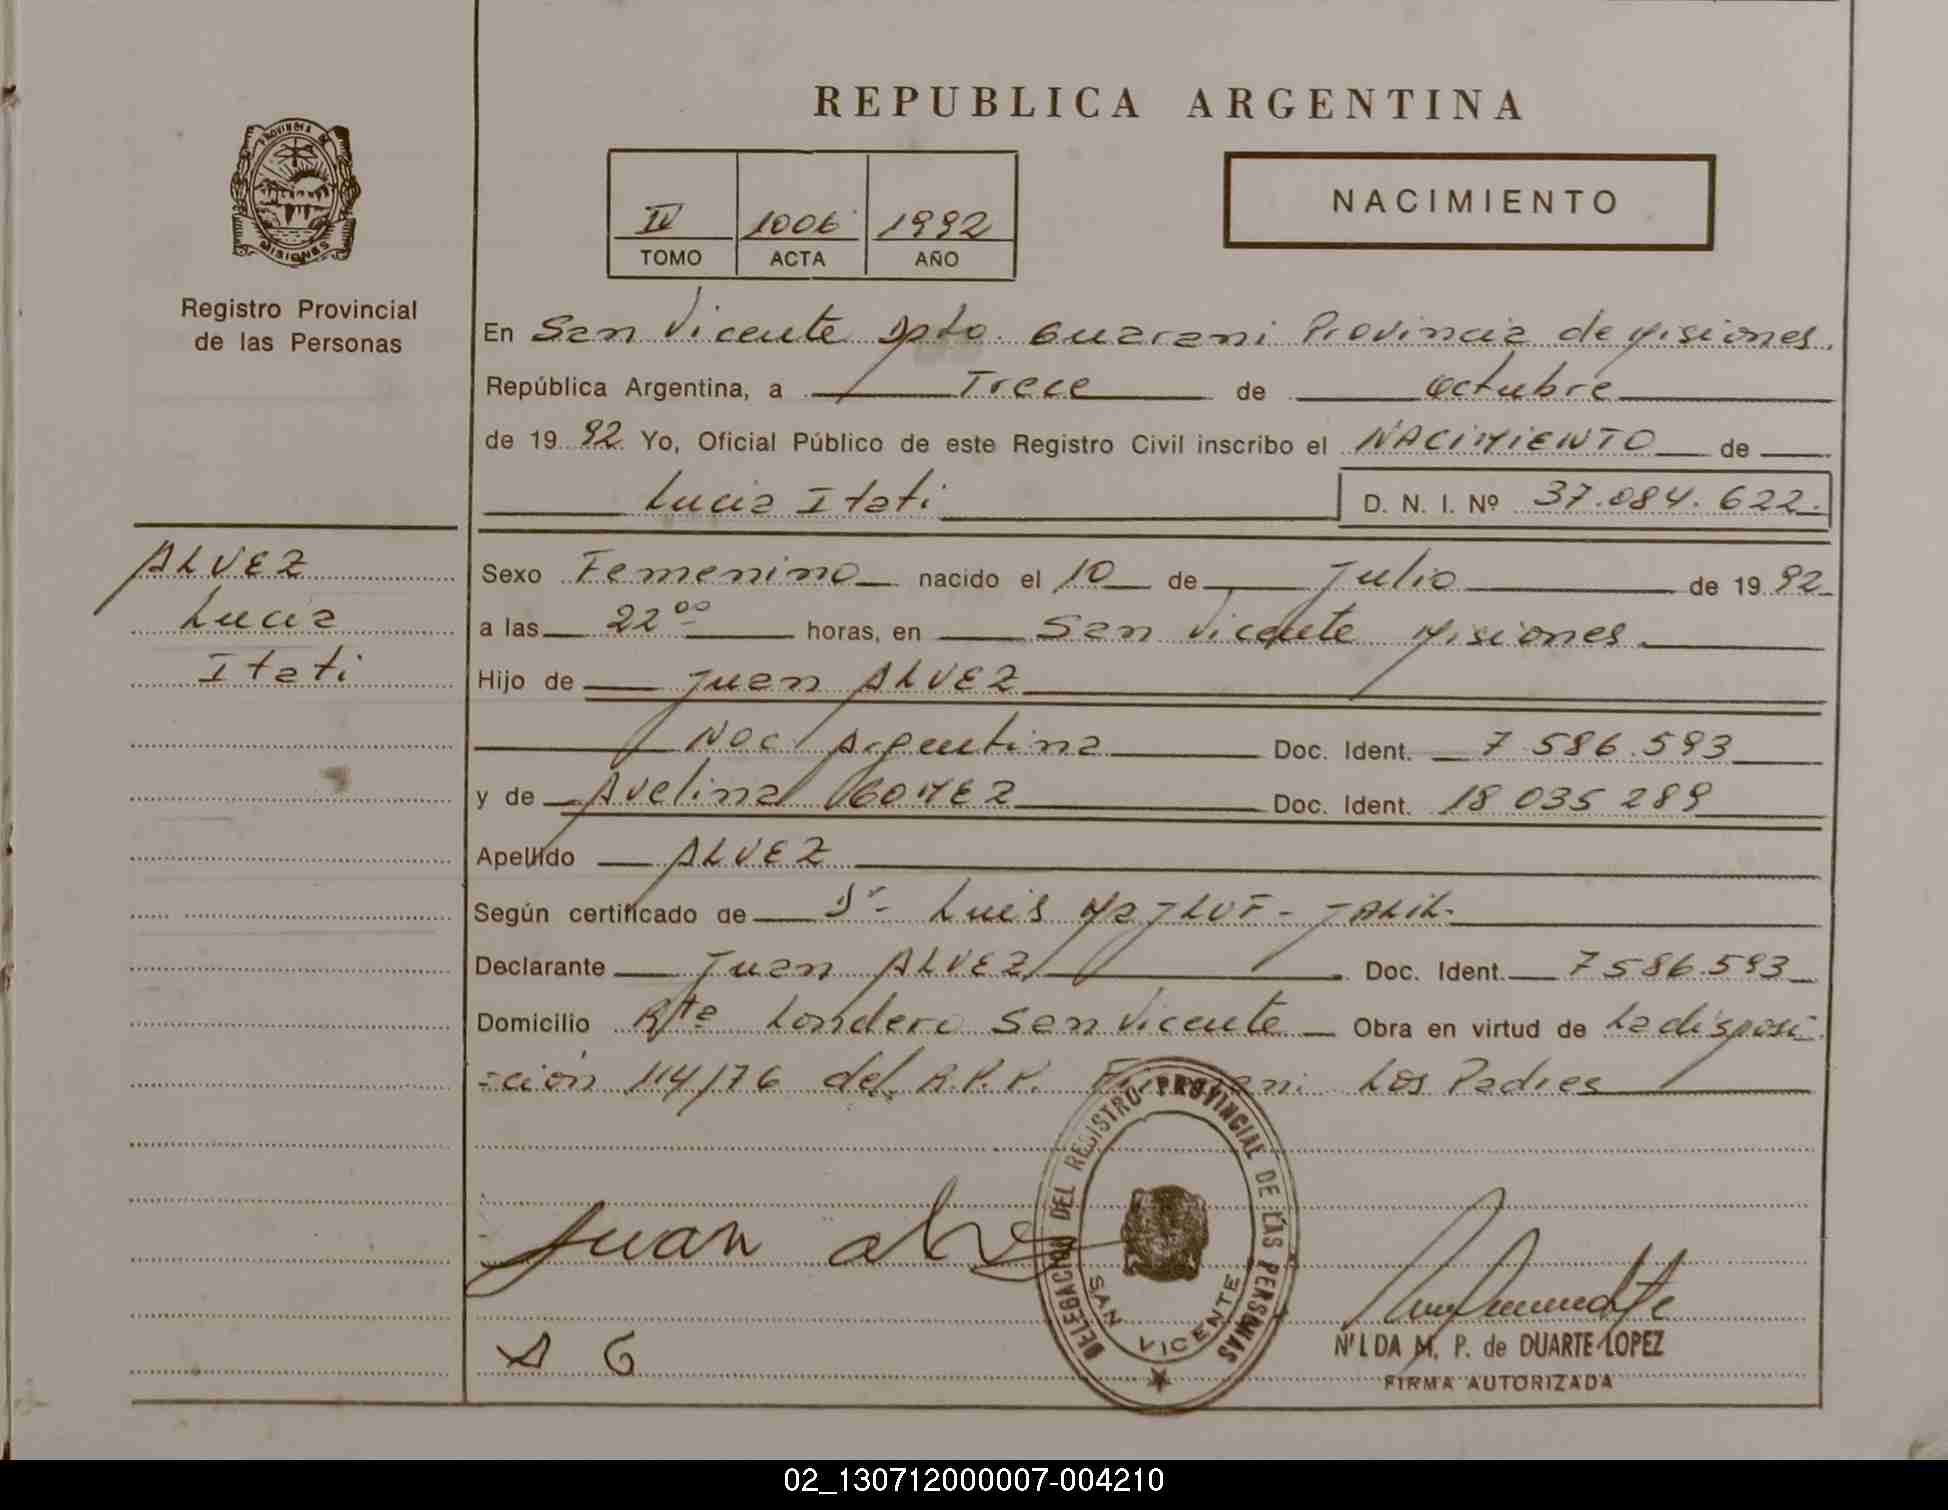 PROVINCIA DE
MISIONES
Registro Provincial
de las Personas
REPUBLICA ARGENTINA
NACIMIENTO
IV 1006 1992
TOMO ACTA AÑO
En San Vicente Dpto. Guarani Provincia de Misiones.
República Argentina, a Trece de octubre
de 19 92 Yo, Oficial Público de este Registro Civil inscribo el NACIMIENTO de
Lucia Itati D. N. I. Nº 37.084.622.
ALVEZ
Lucia
Itati
Sexo Femenino nacido el 10 de Julio de 19 92
a las 22 00 horas, en San Vicente Misiones
Hijo de Juan ALVEZ
Nac Argentina Doc. Ident. 7 586.593
y de Avelina GOMEZ Doc. Ident. 18 035 289
Apellido ALVEZ
Según certificado de Dr- Luis JALIL-
Declarante Juan ALVEZ Doc. Ident. 7586.593
Domicilio Londero San Vicente Obra en virtud de La disposi
=ción 114/76 del R.P.P. Los Padres
Juan alve
A G
DELEGACION DEL REGISTRO PROVINCIAL DE LAS PERSONAS
SAN VICENTE
NILDA M. P. de DUARTE LOPEZ
FIRMA AUTORIZADA
02_130712000007-004210